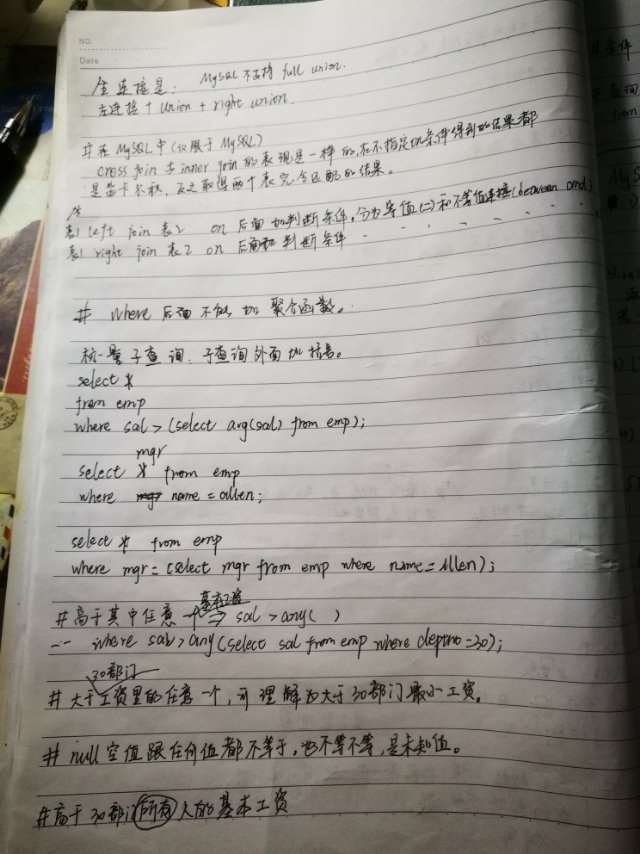 NO.
Date
全连接是: MySQL 不支持 full union.
左连接 + union + right union.
# 在 MySQL 中 (仅限于 MySQL)
cross join 与 inner join 的表现是一样的,在不指定on条件得到的结果都
是笛卡尔积,反之取得两个表完全匹配的结果。
表1 left join 表2 on 后面加判断条件,分为等值(=)和不等值连接(between and)
表1 right join 表2 on 后面加判断条件
# where 后面不能加聚合函数。
标量子查询.子查询外面加括号。
select *
from emp
where sal > (select avg(sal) from emp);
mgr
select * from emp
where name = allen;
select * from emp
where mgr = (select mgr from emp where name = Allen);
基本工资
#高于其中任意一个 => sal > any( )
-- where sal > any(select sal from emp where deptno = 30);
30部门
# 大于工资里的任意一个,可理解为大于30部门最小工资。
# null 空值跟任何值都不等于,也不等不等,是未知值。
#高于30部门所有人的基本工资